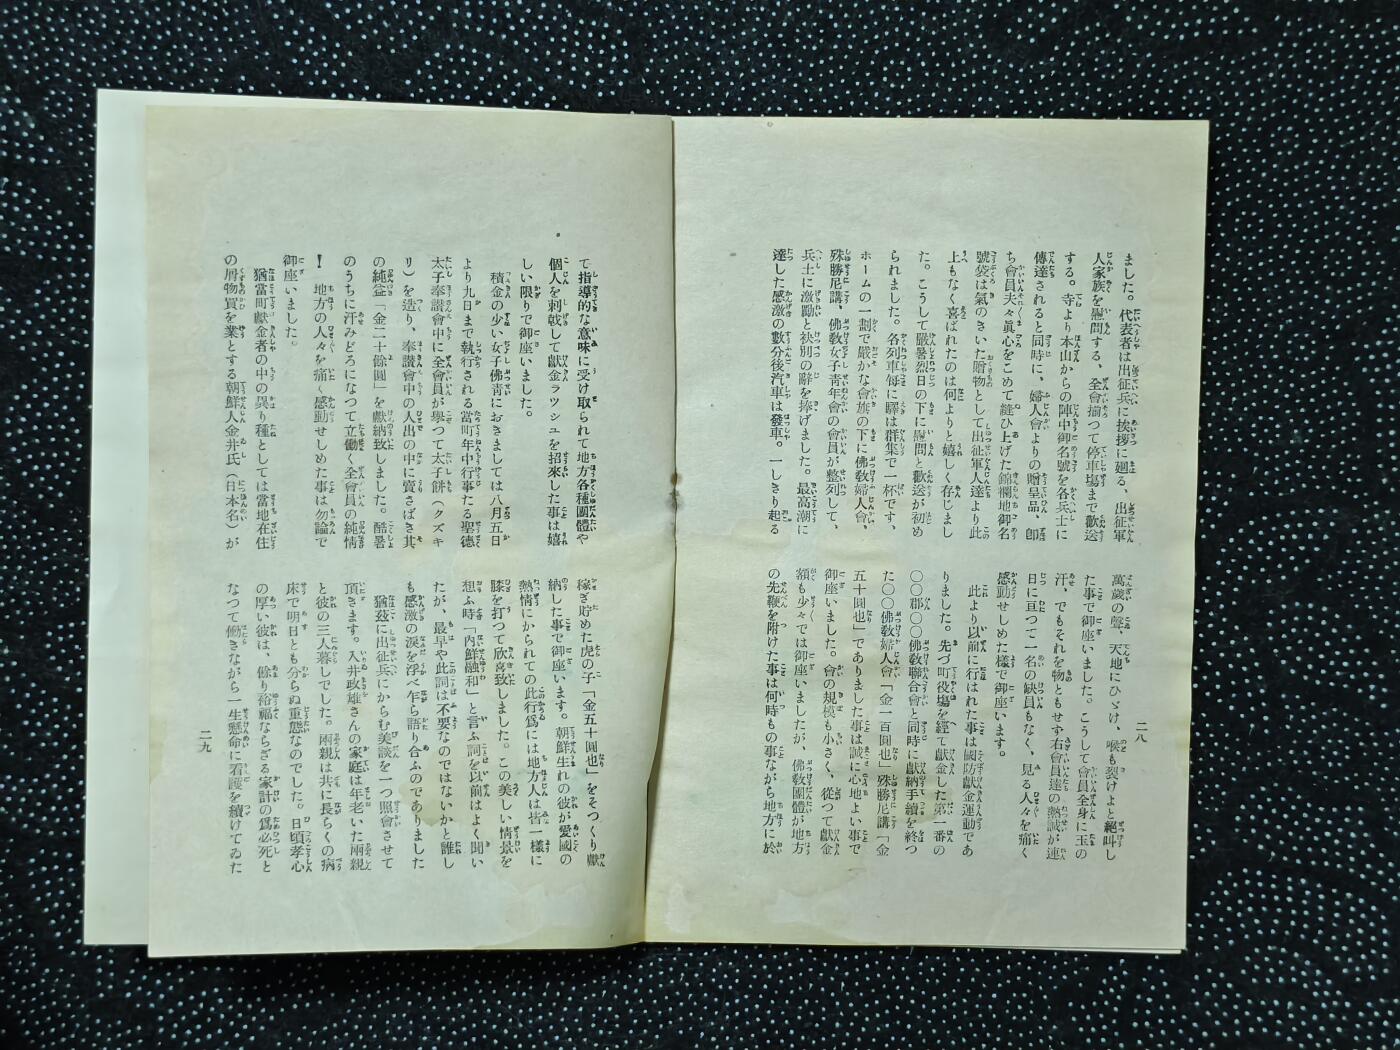 ました。代表者は出征兵に挨拶に廻る、出征軍
人家族を慰問する、全會揃つて停車場まで歡送
する。寺より本山からの陣中御名號を各兵士に
傳達されると同時に、婦人會よりの贈呈品、卽
ち會員夫々眞心をこめて縫ひ上げた錦襴地御名
號袋は氣のきいた贈物として出征軍人達より此
上もなく喜ばれたのは何よりと嬉しく存じまし
た。こうして嚴暑烈日の下に慰問と歡送が初め
られました。各列車每に驛は群集で一杯です、
ホームの一劃で嚴かな會旗の下に佛敎婦人會、
殊勝尼講、佛敎女子靑年會の會員が整列して、
兵士に激勵と袂別の辭を捧げました。最高潮に
達した感激の數分後汽車は發車。一しきり起る
萬歲の聲、天地にひゞけ、喉も裂けよと絕叫し
た事で御座いました。こうして會員全身に玉の
汗、でもそれを物ともせず右會員達の熱誠が連
日に亘つて一名の缺員もなく、見る人々を痛く
感動せしめた樣で御座います。
此より以前に行はれた事は國防獻金運動であ
りました。先づ町役場を經て獻金した第一番の
〇〇郡〇〇〇佛敎聯合會と同時に獻納手續を終つ
た〇〇佛敎婦人會「金一百圓也」殊勝尼講「金
五十圓也」でありました事は誠に心地よい事で
御座いました。會の規模も小さく、從つて獻金
額も少々では御座いましたが、佛敎團體が地方
の先鞭を附けた事は何時もの事ながら地方に於
二八
で指導的な意味に受け取られて地方各種團體や
個人を刺戟して獻金ラツシュを招來した事は嬉
しい限りで御座いました。
積金の少い女子佛靑におきましては八月五日
より九日まで執行される當町年中行事たる聖德
太子奉讃會中に全會員が擧つて太子餠（クズキ
リ）を造り、奉讃會中の人出の中に賣さばき其
の純益「金二十餘圓」を獻納致しました。酷暑
のうちに汗みどろになつて立働く全會員の純情
！　地方の人々を痛く感動せしめた事は勿論で
御座いました。
猶當町獻金者の中の異り種としては當地在住
の屑物買を業とする朝鮮人金井氏（日本名）が
稼ぎ貯めた虎の子「金五十圓也」をそつくり獻
納した事で御座います。朝鮮生れの彼が愛國の
熱情にかられての此行爲には地方人は皆一樣に
膝を打つて欣喜致しました。この美しい情景を
想ふ時「內鮮融和」と言ふ詞を以前はよく聞い
たが、最早や此詞は不要なのではないかと誰し
も感激の淚を浮べ乍ら語り合ふのでありました
猶玆に出征兵にからむ美談を一つ照會させて
頂きます。入井政雄さんの家庭は年老いた兩親
と彼の三人暮しでした。兩親は共に長らくの病
床で明日とも分らぬ重態なのでした。日頃孝心
の厚い彼は、餘り裕福ならざる家計の爲必死と
なつて働きながら一生懸命に看護を續けてゐた
二九